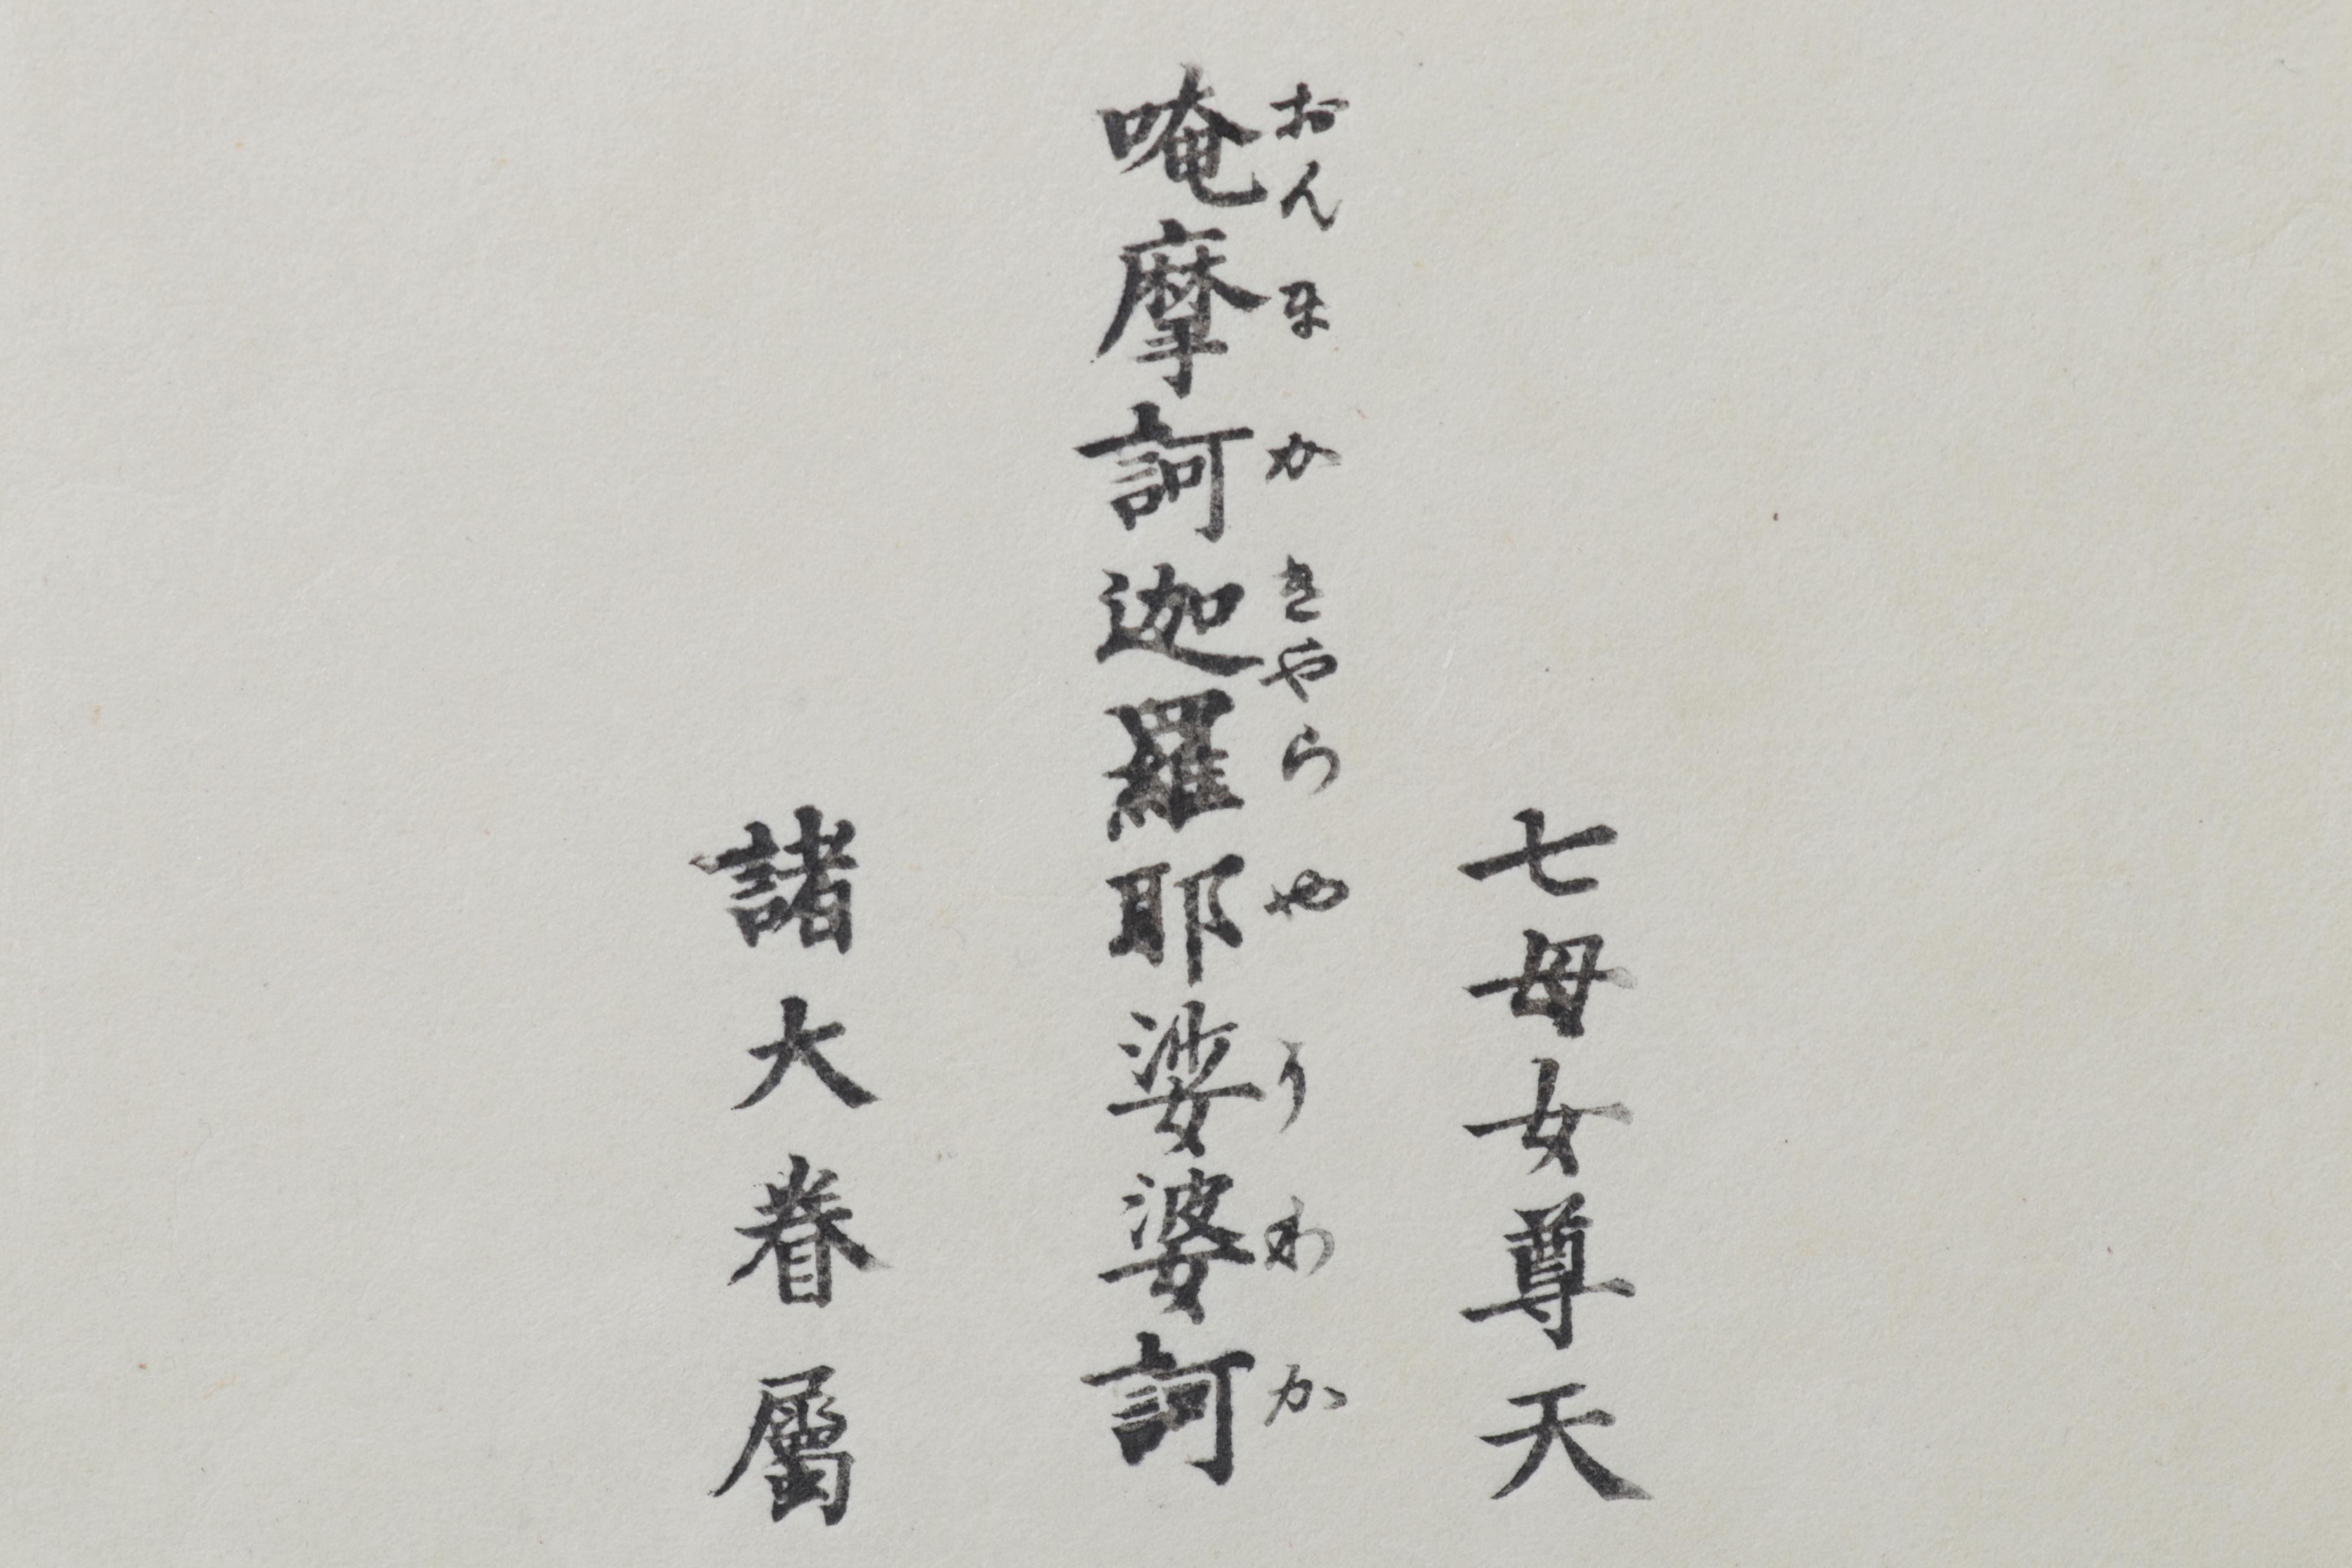 七母女尊天
おんまかきやらやうわか
唵摩訶迦羅耶娑婆訶
諸大眷屬